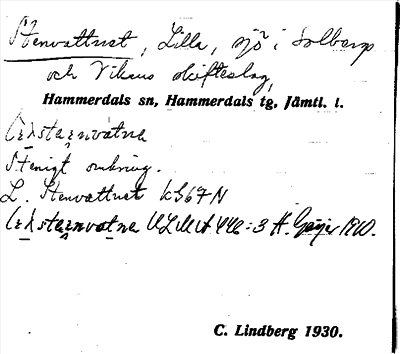 Stenvattnet, Lilla, sjö i Solbergs
och Vikens skifteslag,
Hammerdals sn, Hammerdals tg, Jämtl. l.
stæ̣nvatna
Stenigt omkring.
L. Stenvattnet kS67N
stæ̣nvatna ULMA 446:3 H. Geijer 1910.
C. Lindberg 1930.